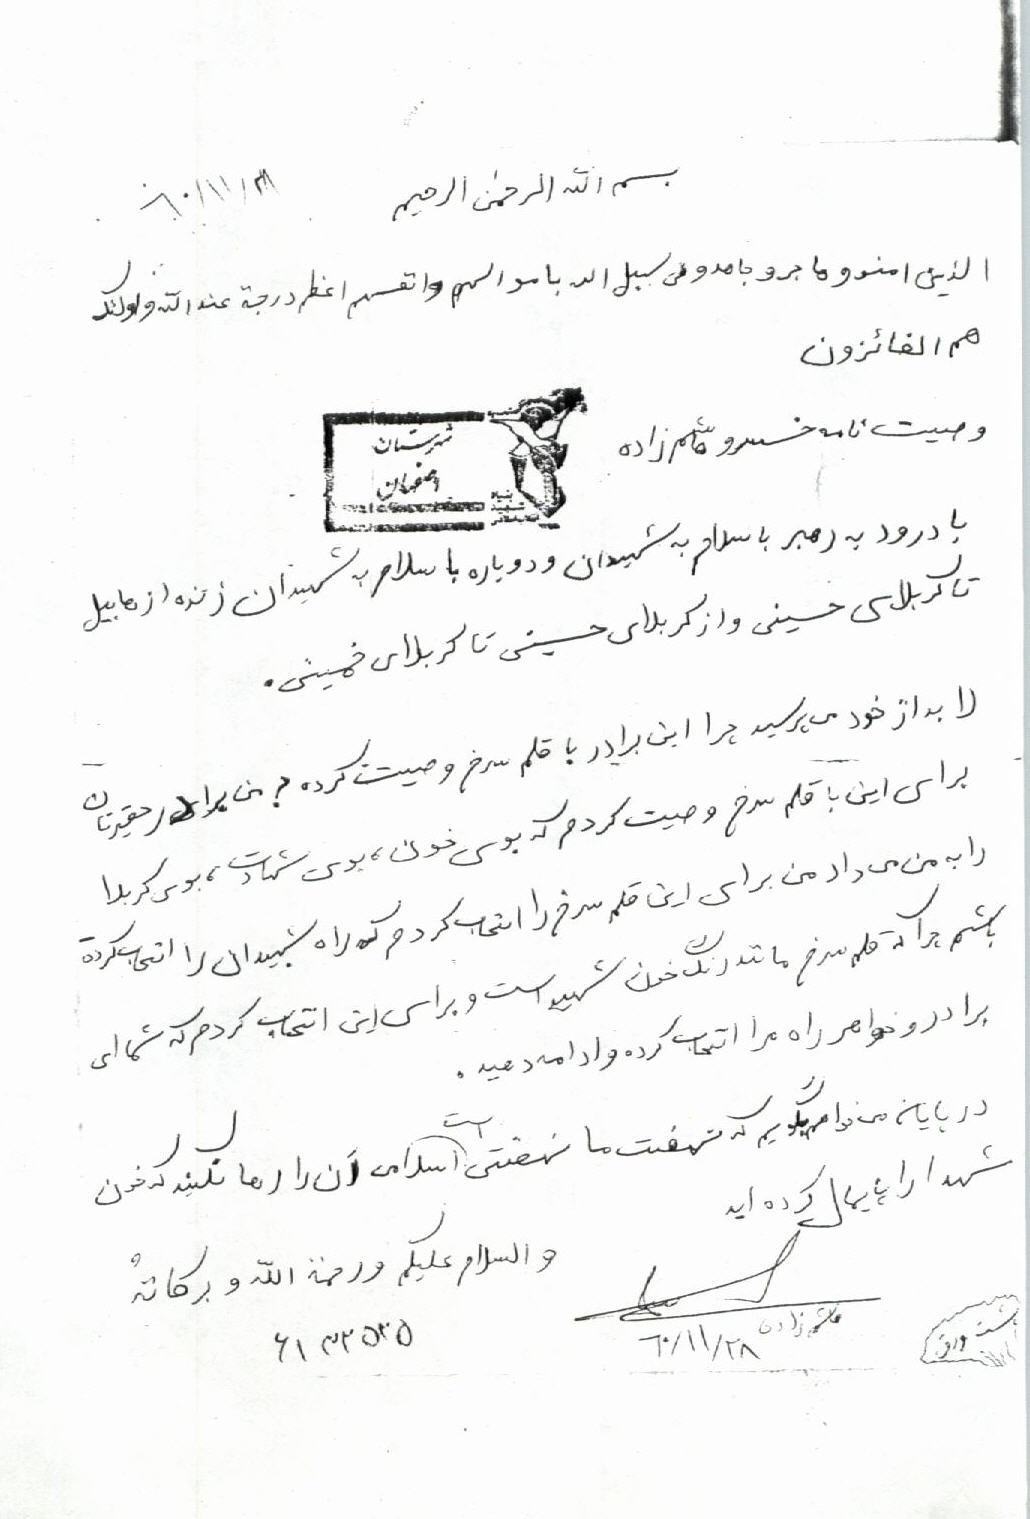 بسم الله الرحمن الرحیم
۶۰/۱۱/۲۸
الذین امنوو هاجرو جاهدو فی سبیل الله باموالهم وانفسهم اعظم درجة عند الله و اولئک
هم الفائزون
وصیت نامه خسرو هاشم زاده
شهرستان
اصفهان
بنیاد
شهید
با درود به رهبر با سلام به شهیدان و دوباره با سلام به شهیدان زنده از هابیل
تا کربلای حسینی و از کربلای حسینی تا کربلای خمینی .
لابد از خود می پرسید چرا این برادر با قلم سرخ وصیت کرده ؟ من برادر حقیرتان
برای این با قلم سرخ وصیت کردم که بوی خون ، بوی شهادت ، بوی کربلا
را به من می داد من برای این قلم سرخ را انتخاب کردم که راه شهیدان را انتخاب کرده
باشم چرا که قلم سرخ مانند رنگ خون شهید است و برای این انتخاب کردم که شما ای
برادر و خواهر راه مرا انتخاب کرده و ادامه دهید .
در پایان می خواهم بگویم که نهضت ما نهضتی اسلامی است آن را رها نکنید که خون
شهدا را پایمال کرده اید
والسلام علیکم و رحمة الله و برکاته
هاشم زاده
۶۰/۱۱/۲۸
۶۱۳۲۵۲۵
پشت ورق